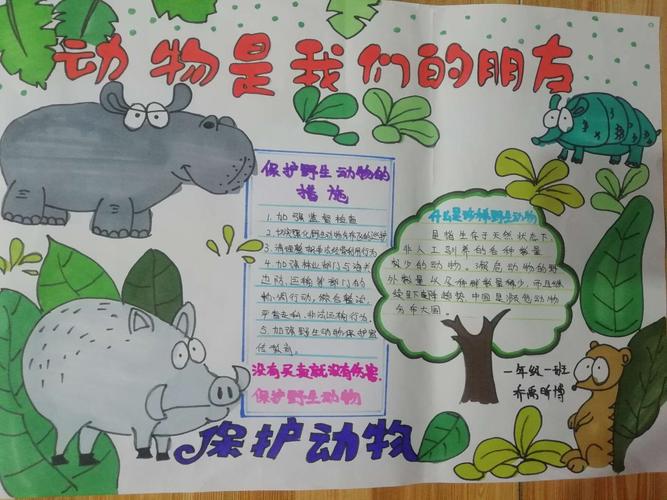 动物是我们的朋友
保护野生动物的
措施
1.加强监督检查
2.切实强化野生动物
3.清理整顿非法经营利用行为
4.加强林业部门与海关
边防、运输等部门的
协调行动,综合整治,
严查走私、非法运输行为。
5.加强野生动物保护宣
传教育。
没有买卖就没有伤害.
保护野生动物
什么是珍稀野生动物
是指生存于天然状态下,
非人工驯养的各种数量
较少的动物。濒危动物的野
外数量从各种群数量稀少,而且继
续呈下降趋势 中国是濒危动物
分布大国.
一年级一班
乔禹昕博
保护动物